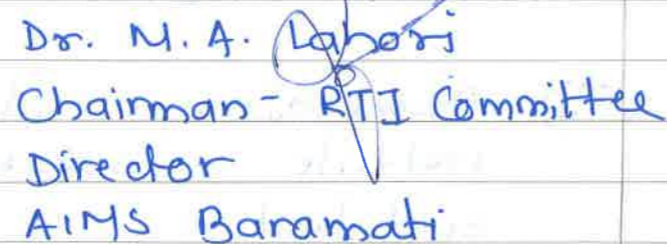 Dr. M. A. Lahori
Chairman - RTI Committee
Director
AIMS Baramati